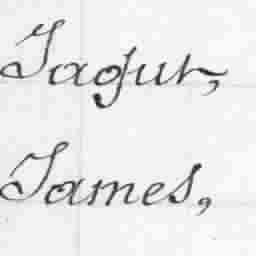 Jagur,
James,